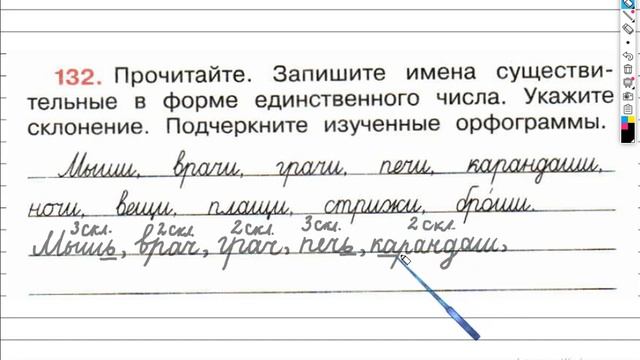 132. Прочитайте. Запишите имена существи-
тельные в форме единственного числа. Укажите
склонение. Подчеркните изученные орфограммы.
Мыши, врачи, грачи, печи, карандаши,
ночи, вещи, плащи, стрижи, бро́ши.
3скл. 2скл. 2скл. 3скл. 2скл.
Мышь, врач, грач, печь, карандаш,